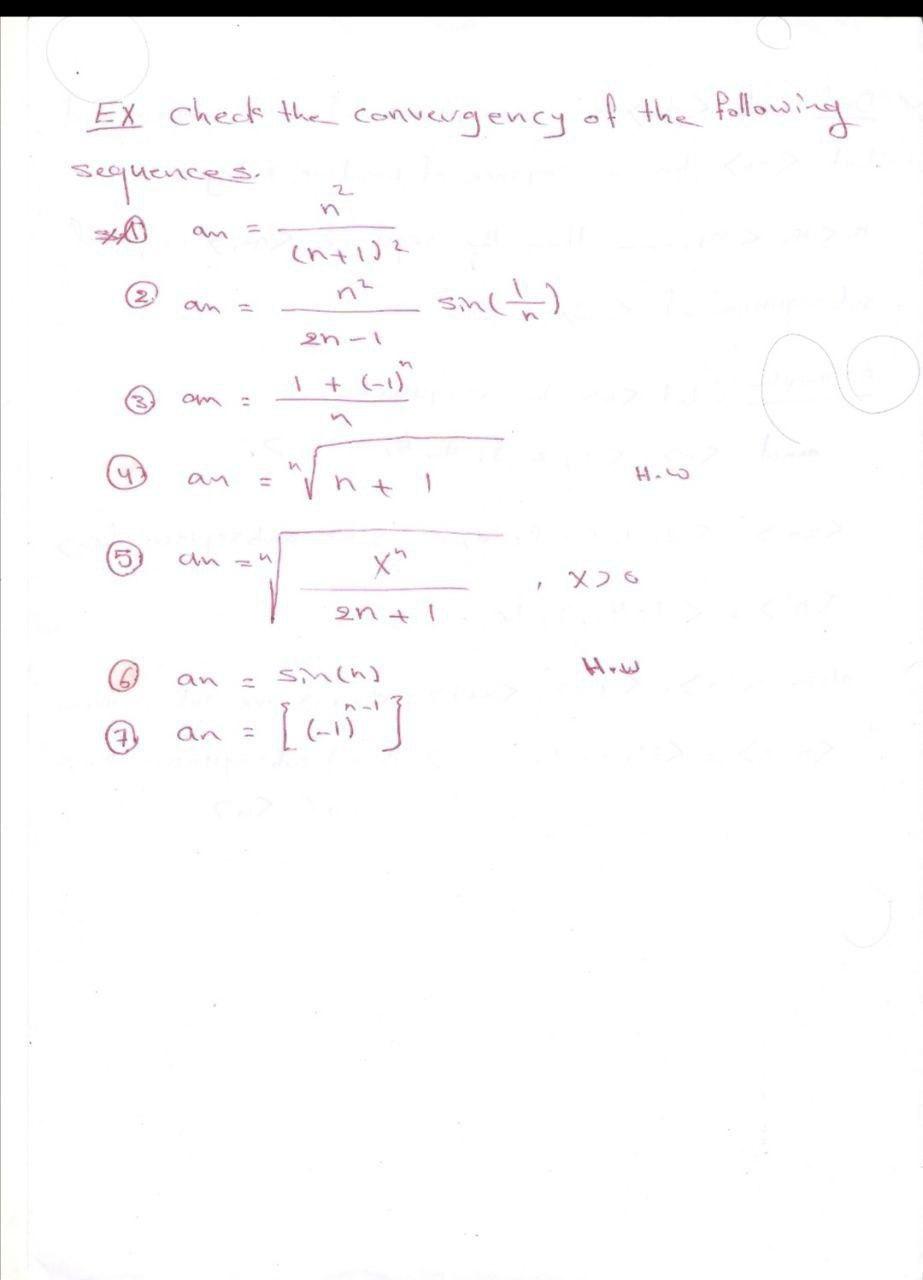 EX check the convergency of the following
sequences.
① an = n² / (n+1)²
② an = n² / 2n-1 sin(1/n)
③ an = 1 + (-1)ⁿ / n
④ an = ⁿ√(n + 1) H.w
⑤ an = ⁿ√(xⁿ / 2n + 1) , x>0
⑥ an = sin(n) H.w
⑦ an = [(-1)ⁿ⁻¹]